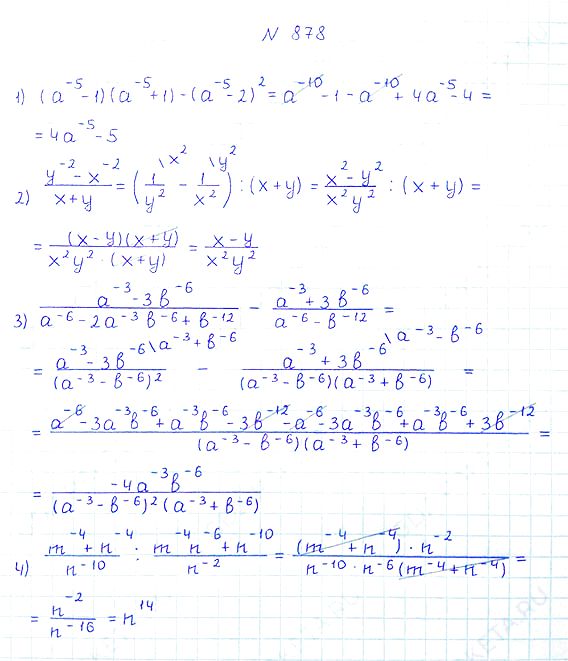 N 878
1) (a⁻⁵-1)(a⁻⁵+1)-(a⁻⁵-2)² = a⁻¹⁰-1-a⁻¹⁰+4a⁻⁵-4 =
= 4a⁻⁵-5
2) (y⁻²-x⁻²)/(x+y) = (1/y² \x² - 1/x² \y²) : (x+y) = (x²-y²)/(x²y²) : (x+y) =
= ((x-y)(x+y))/(x²y²·(x+y)) = (x-y)/(x²y²)
3) (a⁻³-3b⁻⁶)/(a⁻⁶-2a⁻³b⁻⁶+b⁻¹²) - (a⁻³+3b⁻⁶)/(a⁻⁶-b⁻¹²) =
= (a⁻³-3b⁻⁶)/((a⁻³-b⁻⁶)²) \a⁻³+b⁻⁶ - (a⁻³+3b⁻⁶)/((a⁻³-b⁻⁶)(a⁻³+b⁻⁶)) \a⁻³-b⁻⁶ =
= (a⁻⁶-3a⁻³b⁻⁶+a⁻³b⁻⁶-3b⁻¹²-a⁻⁶-3a⁻³b⁻⁶+a⁻³b⁻⁶+3b⁻¹²)/((a⁻³-b⁻⁶)(a⁻³+b⁻⁶)) =
= (-4a⁻³b⁻⁶)/((a⁻³-b⁻⁶)²(a⁻³+b⁻⁶))
4) (m⁻⁴+n⁻⁴)/n⁻¹⁰ : (m⁻⁴n⁻⁶+n⁻¹⁰)/n⁻² = ((m⁻⁴+n⁻⁴)·n⁻²)/(n⁻¹⁰·n⁻⁶(m⁻⁴+n⁻⁴)) =
= n⁻²/n⁻¹⁶ = n¹⁴